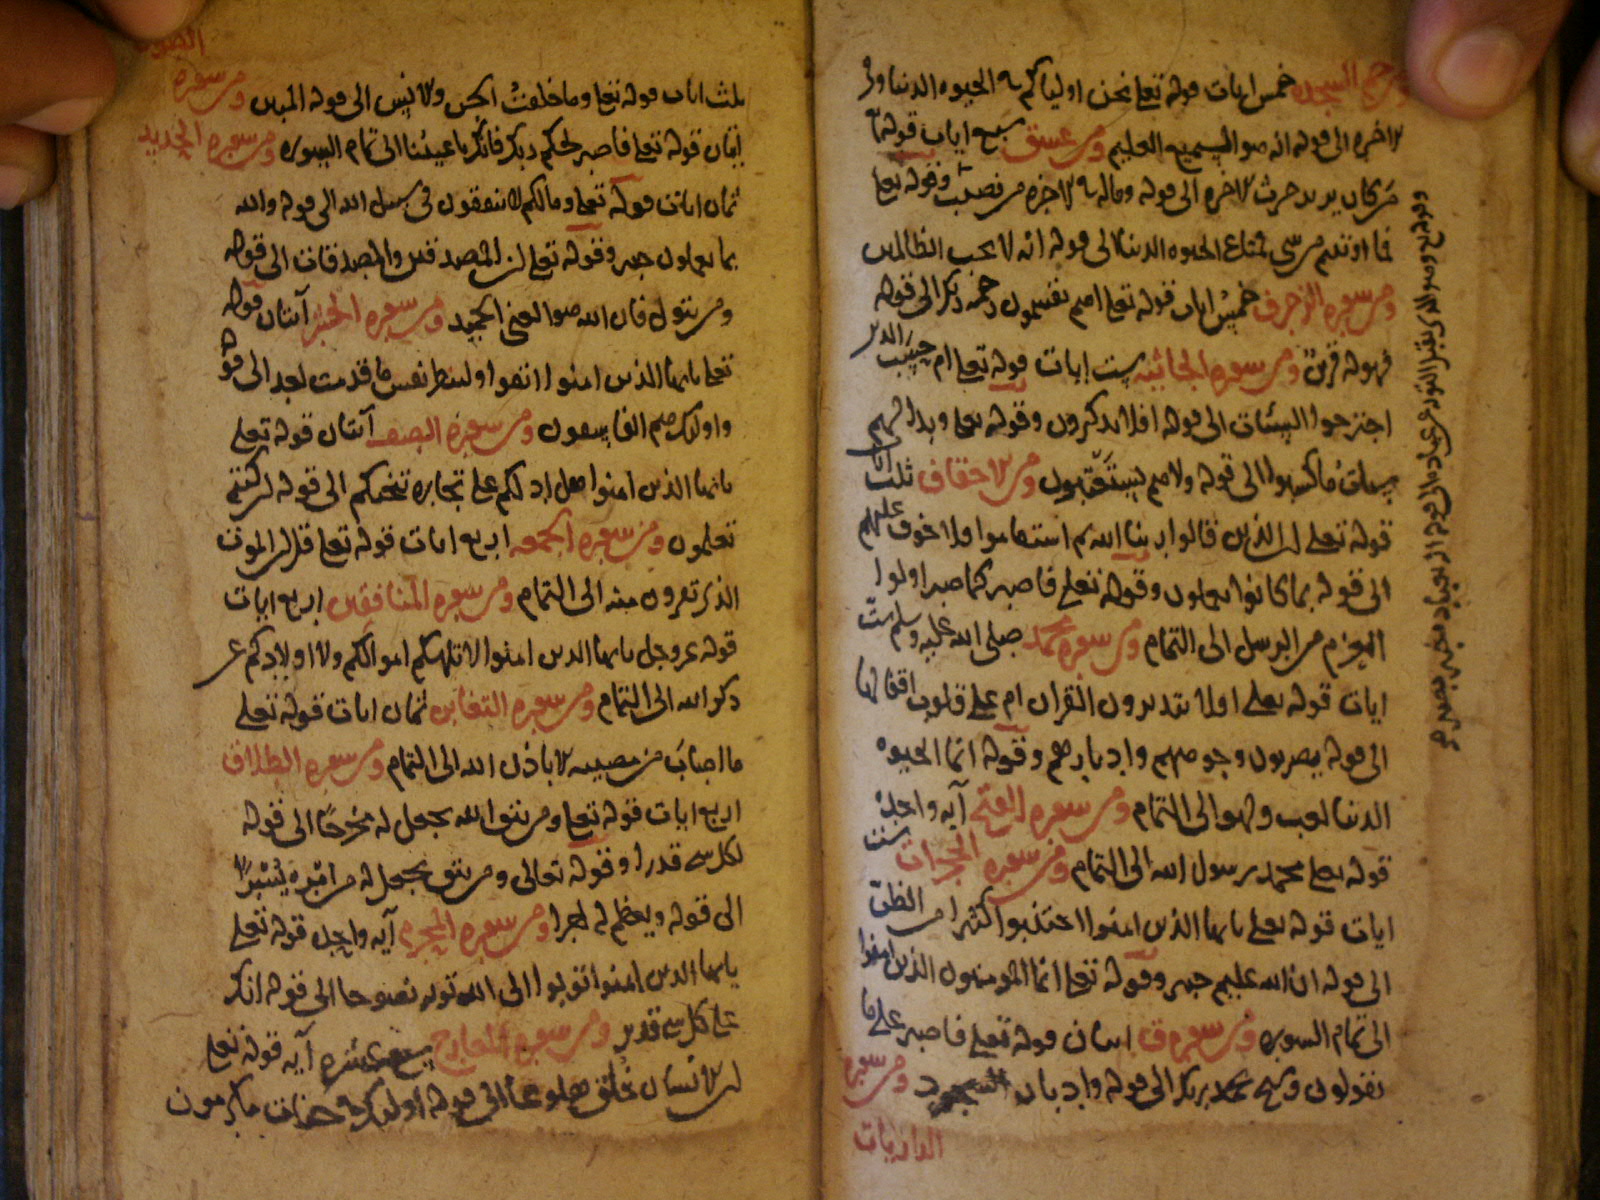 ومن حم السجدة خمس ايات قوله تعلى نحن اولياكم في الحيوه الدنيا وفي
الاخره الى قوله انه هو السميع العليم ومن عسق سبع ايات قوله تعالى
من كان يريد حرث الاخره الى قوله وماله في الاخره من نصيب وقوله تعلى
فما اوتيتم من شي فمتاع الحيوه الدنيا الى قوله انه لا يحب الظالمين
ومن سوره الزخرف خمس ايات قوله تعلى اهم يقسمون رحمة ربك الى قوله
فهو له قرين ومن سوره الجاثيه ست ايات قوله تعلى ام حسب الذين
اجترحوا السيئات الى قوله افلا تذكرون وقوله تعلى وبدا لهم
سيئات ما كسبوا الى قوله ولا هم يستعتبون ومن الاحقاف ثلث ايات
قوله تعلى ان الذين قالوا ربنا الله ثم استقاموا فلا خوف عليهم
الى قوله بما كانوا يعملون وقوله تعلى فاصبر كما صبر اولوا
العزم من الرسل الى التمام ومن سوره محمد صلى الله عليه وسلم ست
ايات قوله تعلى افلا يتدبرون القران ام على قلوب اقفالها
الى قوله يضربون وجوههم وادبارهم وقوله انما الحيوه
الدنيا لعب ولهو الى التمام ومن سوره الفتح آيه واحدة
قوله تعلى محمد رسول الله الى التمام ومن سوره الحجرات ست
ايات قوله تعلى يايها الذين امنوا اجتنبوا كثيرا من الظن
الى قوله ان الله عليم خبير وقوله تعلى انما المومنون الذين امنوا
الى تمام السوره ومن سوره ق ايتان قوله تعلى فاصبر على ما
يقولون وسبح بحمد ربك الى قوله وادبار السجود ومن سوره
الذاريات
وقوله تعلى وهو الذي يقبل التوبه عن عباده الى قوله انه بعباده خبير بصير
ثلث ايات قوله تعلى وما خلقت الجن والانس الى قوله المتين ومن سوره
الطور
ايتان قوله تعلى فاصبر لحكم ربك فانك باعيننا الى تمام السوره ومن سوره الحديد
ثمان ايات قوله تعلى ومالكم لا تنفقون في سبيل الله الى قوله والله
بما يعملون خبير وقوله تعلى ان المصدقين والمصدقات الى قوله
ومن يتول فان الله هو الغني الحميد ومن سوره الحشر آيتان قوله
تعلى يايها الذين امنوا اتقوا ولتنظر نفس ما قدمت لغد الى قوله
واولئك هم الفاسقون ومن سوره الصف آيتان قوله تعلى
يايها الذين امنوا هل ادلكم على تجاره تنجيكم الى قوله ان كنتم
تعلمون ومن سوره الجمعه اربع ايات قوله تعلى قل ان الموت
الذي تفرون منه الى التمام ومن سوره المنافقين اربع ايات
قوله عز وجل يايها الذين امنوا لا تلهكم اموالكم ولا اولادكم عن
ذكر الله الى التمام ومن سوره التغابن ثمان ايات قوله تعلى
ما اصاب من مصيبه الا باذن الله الى التمام ومن سوره الطلاق
اربع ايات قوله تعلى ومن يتق الله يجعل له مخرجا الى قوله
لكل شي قدرا وقوله تعالى ومن يتق يجعل له من امره يسرا
الى قوله ويعظم له اجرا ومن سوره المحرم آيه واحده قوله تعلى
يايها الذين امنوا توبوا الى الله توبه نصوحا الى قوله انك
على كل شي قدير ومن سوره المعارج سبع عشره آيه قوله تعلى
ان الانسان خلق هلوعا الى قوله اولئك في جنات مكرمون